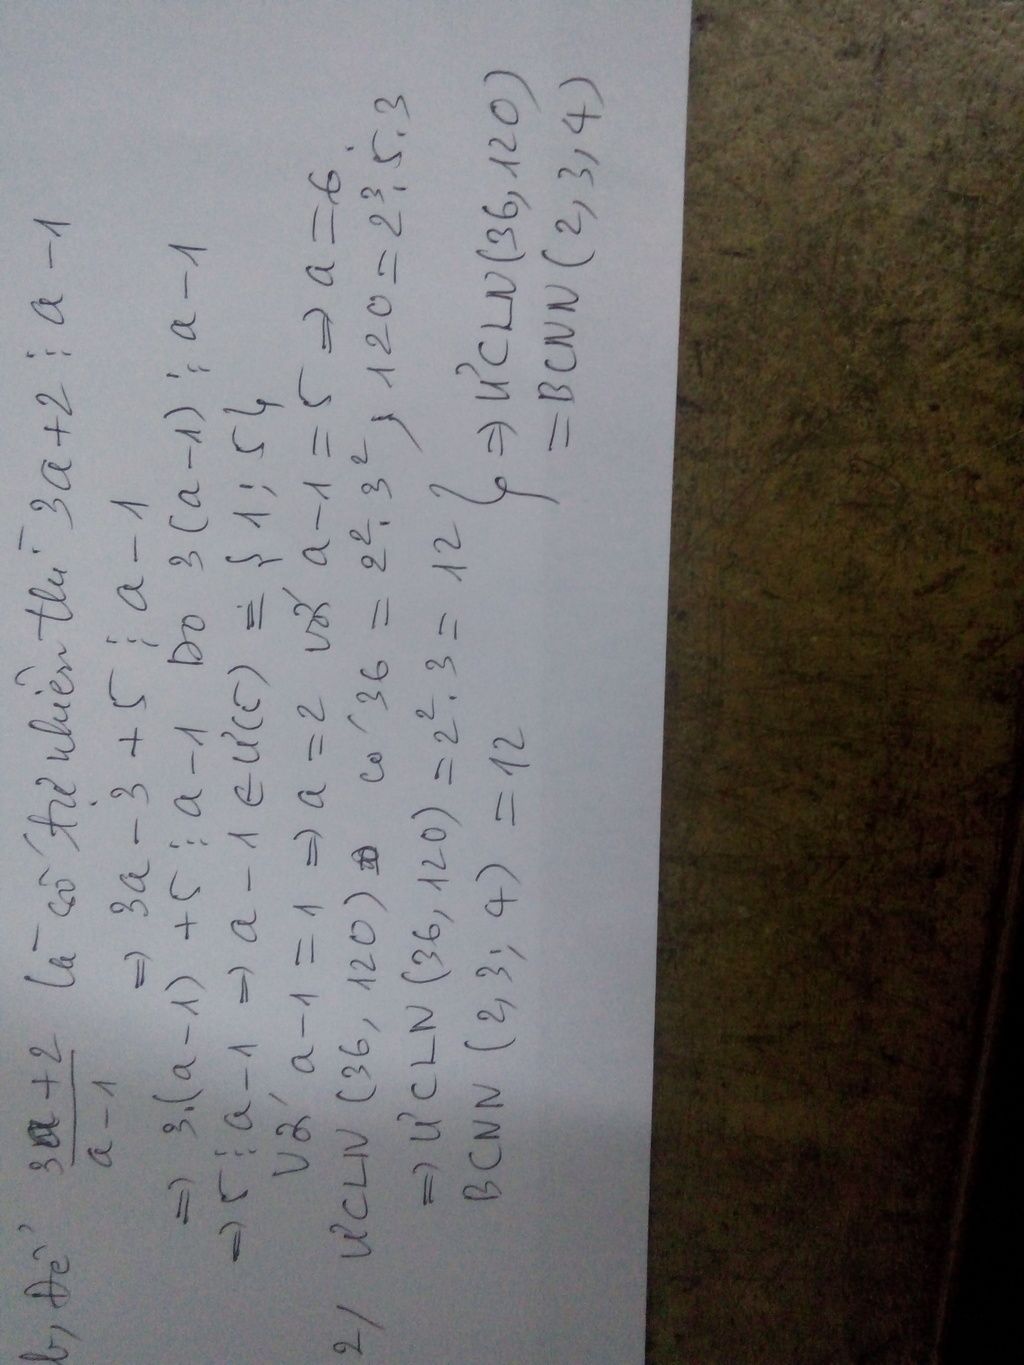 b, Để 3a+2 / a-1 là số tự nhiên thì 3a+2 ⋮ a-1
=> 3a-3+5 ⋮ a-1
=> 3.(a-1)+5 ⋮ a-1 Do 3(a-1) ⋮ a-1
=> 5 ⋮ a-1 => a-1 ∈ Ư(5) = {1; 5}
Với a-1=1 => a=2 với a-1=5 => a=6
2/ ƯCLN(36,120) có 36 = 2².3², 120=2³.5.3
=> ƯCLN(36,120) = 2².3=12
BCNN(2,3,4) =12
} => ƯCLN(36,120)
=BCNN(2,3,4)